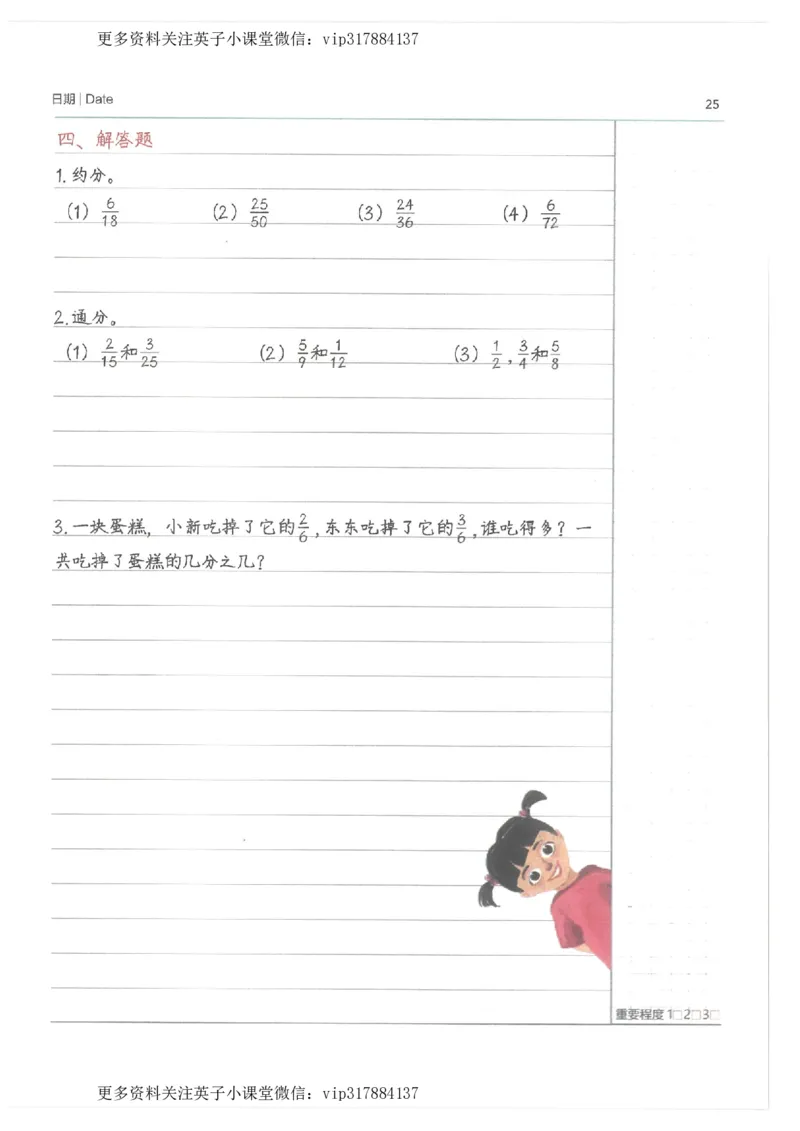 更多资料关注英子小课堂微信：vip317884137
日期 | Date 25
四、解答题
1.约分。
(1) 6/18 (2) 25/50 (3) 24/36 (4) 6/72
2.通分。
(1) 2/15和3/25 (2) 5/9和1/12 (3) 1/2,3/4和5/8
3.一块蛋糕，小新吃掉了它的2/6,东东吃掉了它的3/6,谁吃得多？一
共吃掉了蛋糕的几分之几？
重要程度 1□2□3□
更多资料关注英子小课堂微信：vip317884137